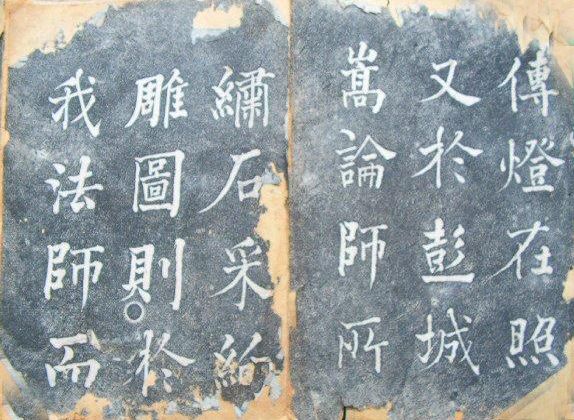 傳燈在照
又於彭城
嵩論師所
繡石采
雕圖則於
我法師而